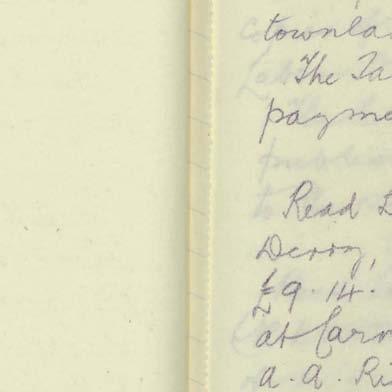 townla
The Ta
payme
Read L
Derry,
£9.14.
at Carn
a. a. Ri